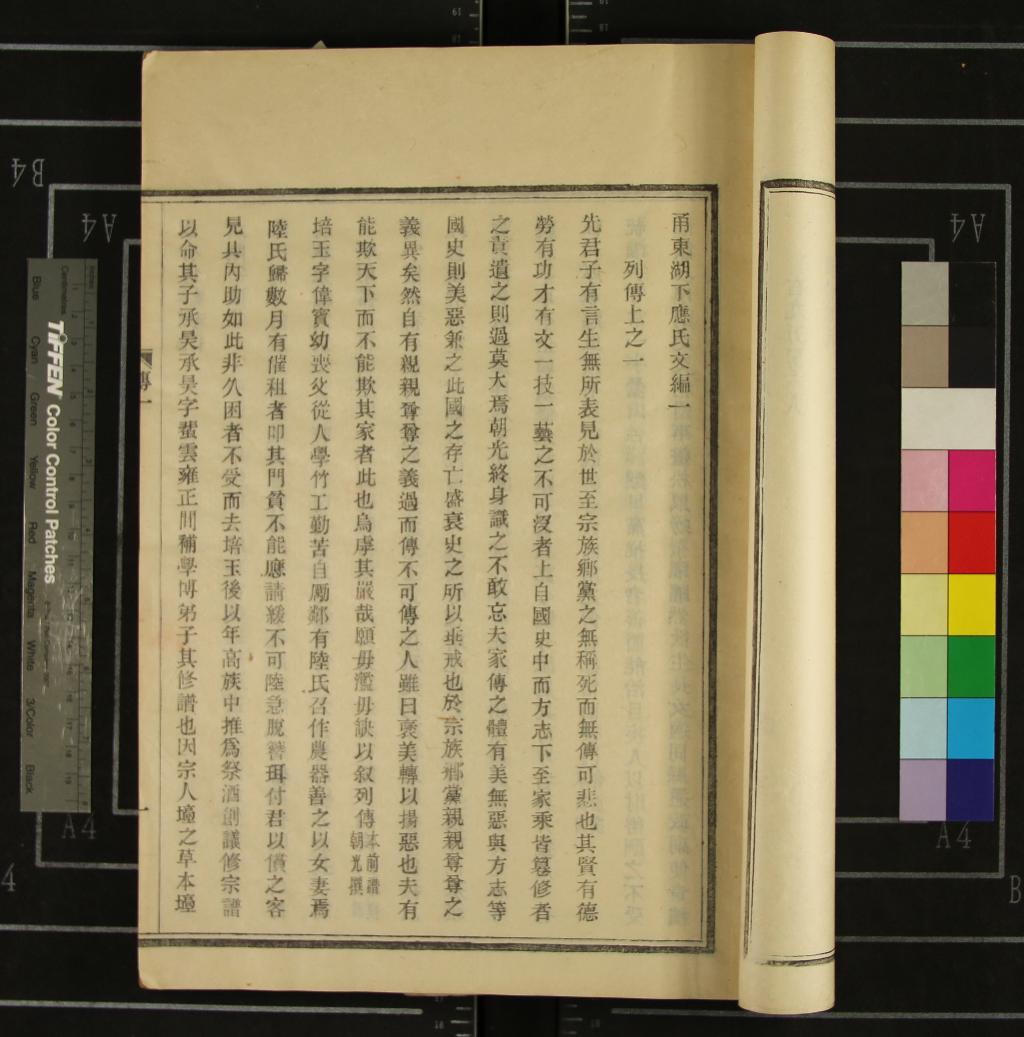 甬東湖下應氏文編一
列傳上之一
先君子有言生無所表見於世至宗族鄉黨之無稱死而無傳可悲也其賢有德
勞有功才有文一技一藝之不可沒者上自國史中而方志下至家乘皆纂修者
之責遺之則過莫大焉朝光終身識之不敢忘夫家傳之體有美無惡與方志等
國史則美惡兼之此國之存亡盛衰史之所以垂戒也於宗族鄉黨親親尊尊之
義異矣然自有親親尊尊之義過而傳不可傳之人雖曰褒美轉以揚惡也夫有
能欺天下而不能欺其家者此也烏虖其嚴哉願毋濫毋缺以叙列傳本前譜朝光撰
培玉字偉寶幼喪父從人學竹工勤苦自勵鄰有陸氏召作農器善之以女妻焉
陸氏歸數月有催租者叩其門貧不能應請緩不可陸急脫簪珥付君以償之客
見其內助如此非久困者不受而去培玉後以年高族中推為祭酒創議修宗譜
以命其子承昊承昊字蜚雲雍正間補學博弟子其修譜也因宗人壇之草本壇
傳一
一
B4
A4
A4
A4
A4
4
B
TIFFEN Color Control Patches
Blue
Cyan
Green
Yellow
Red
Magenta
White
3/Color
Black
Centimetres
Inches